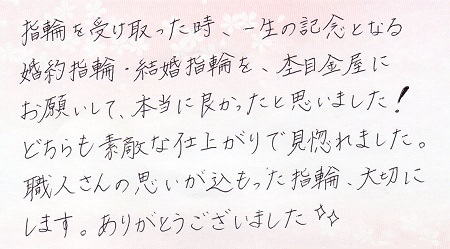 指輪を受け取った時、一生の記念となる
婚約指輪・結婚指輪を、杢目金屋に
お願いして、本当に良かったと思いました！
どちらも素敵な仕上がりで見惚れました。
職人さんの思いが込もった指輪、大切に
します。ありがとうございました✨